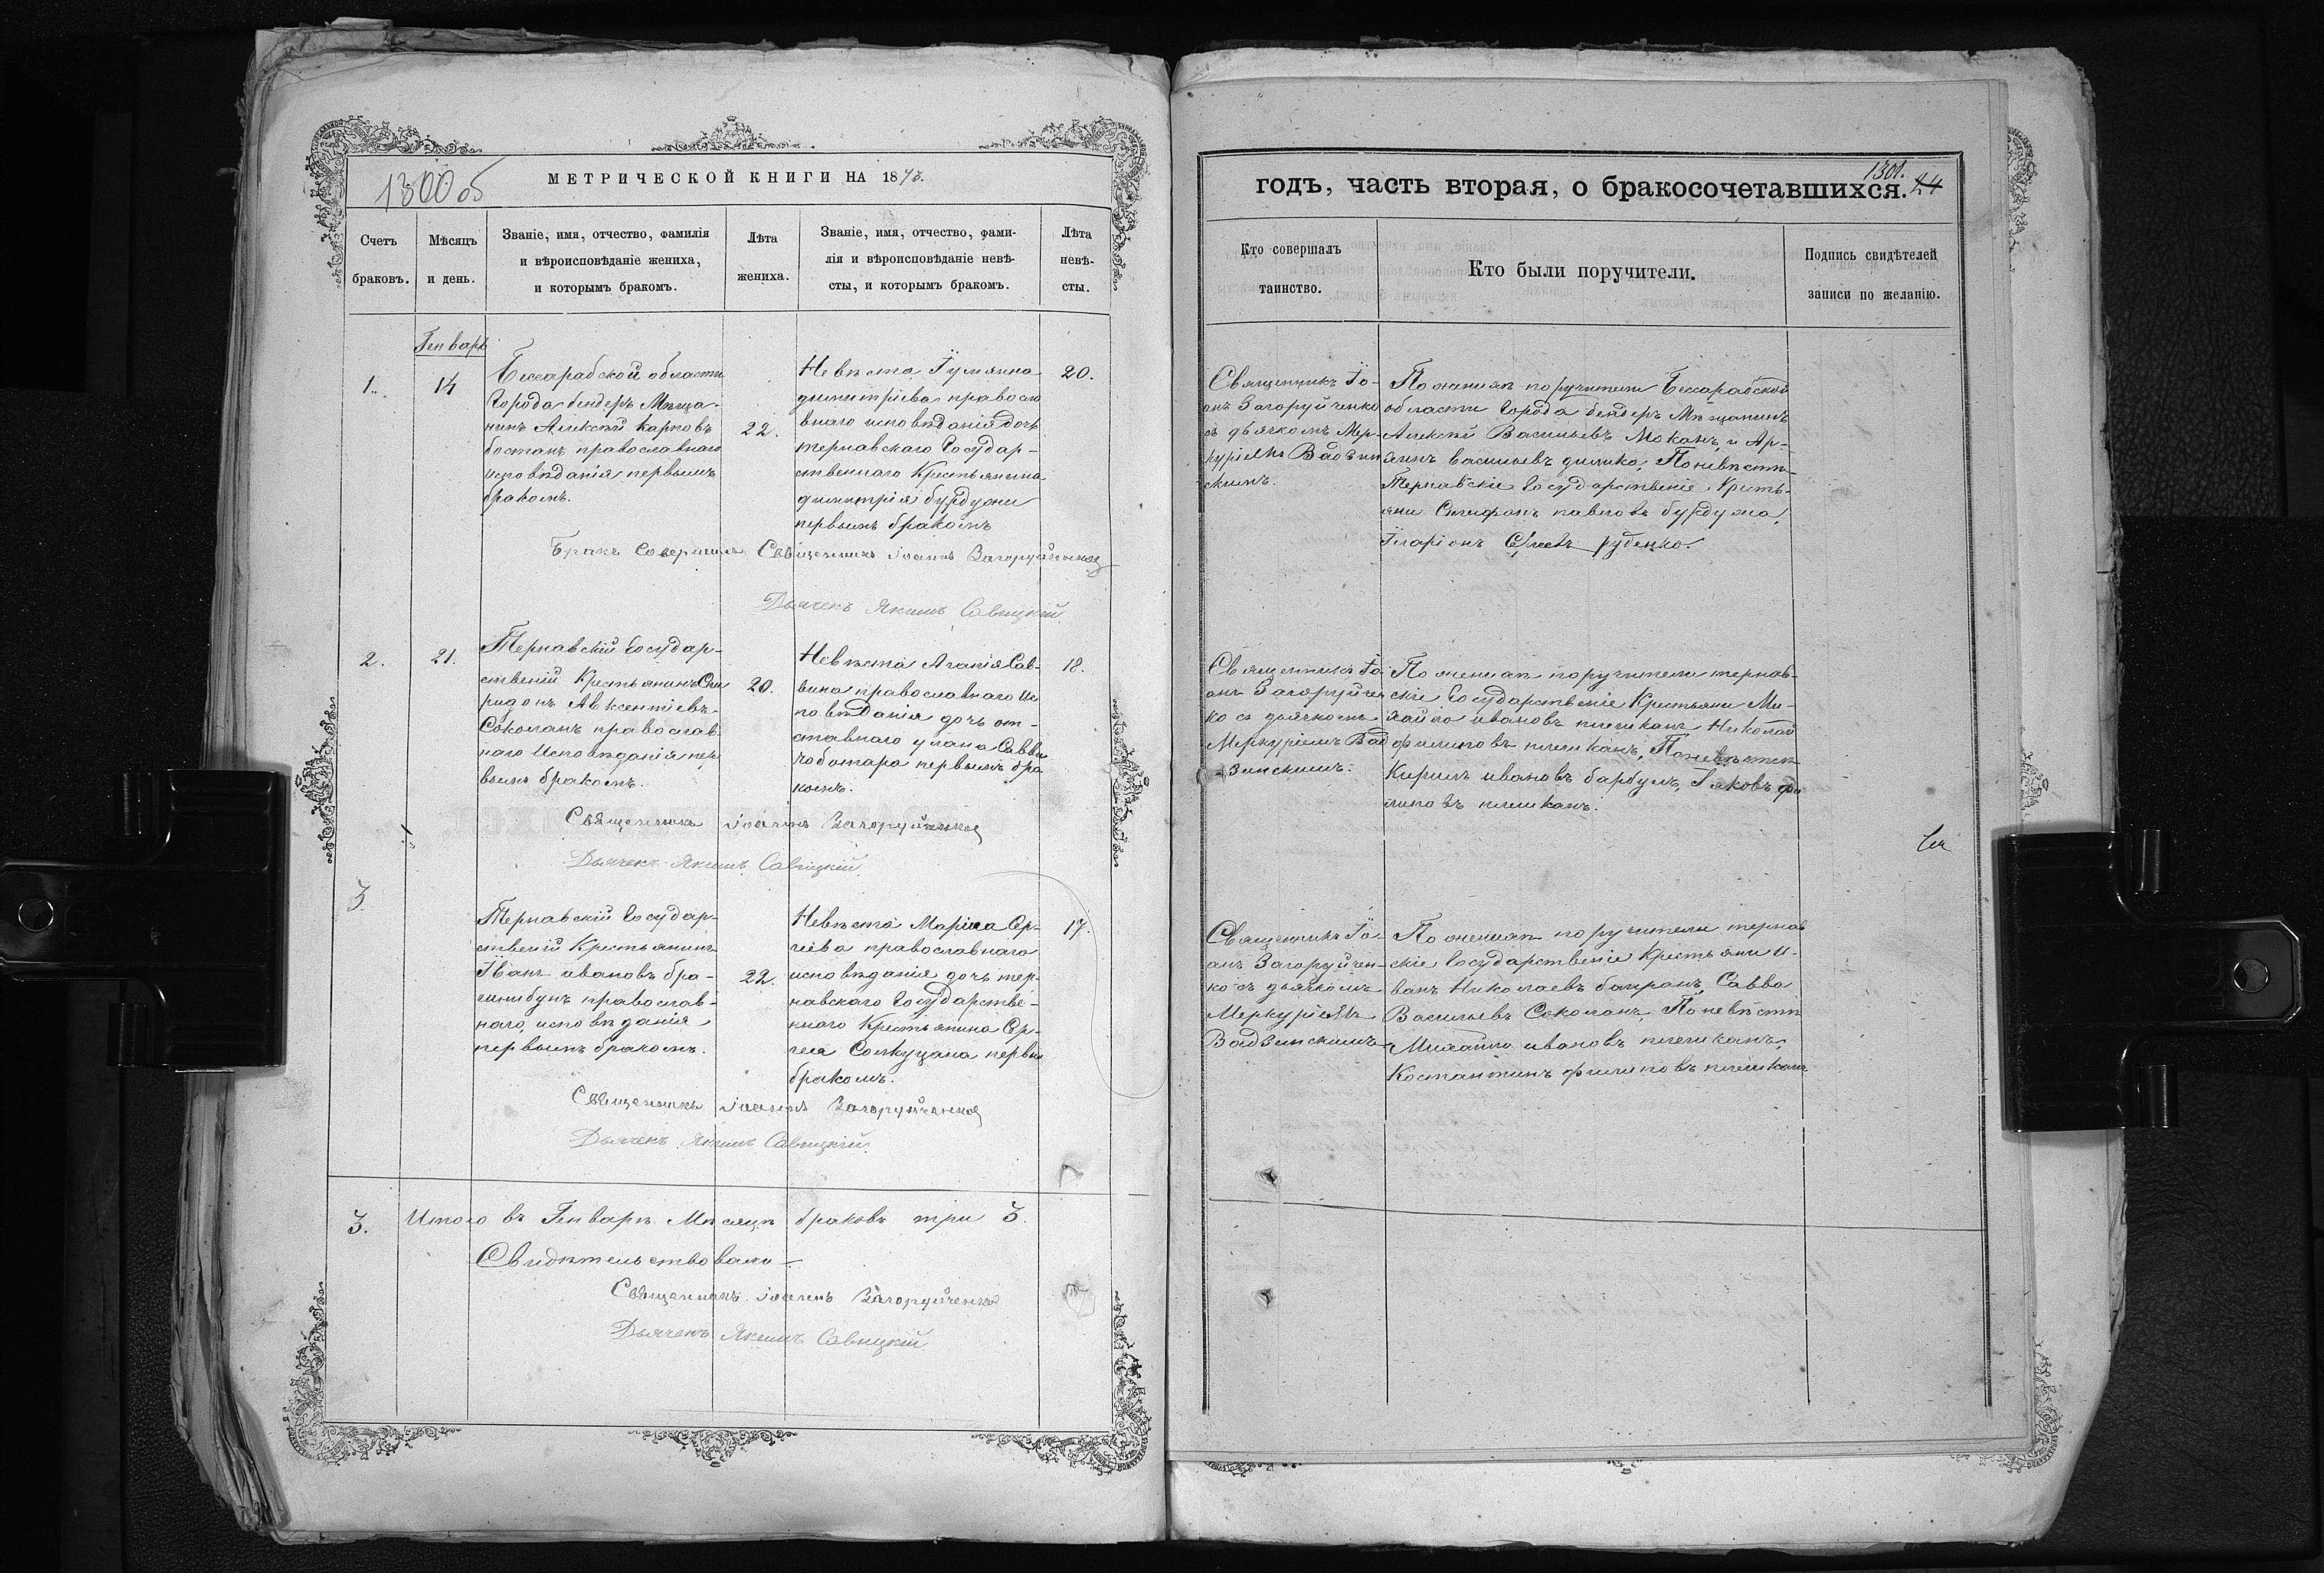 1300 об
МЕТРИЧЕСКОЙ КНИГИ НА 1873.
Счетъ браковъ.
Мѣсяцъ и день.
Званіе, имя, отчество, фамилія
и вѣроисповѣданіе жениха,
и которымъ бракомъ.
Лѣта жениха.
Званіе, имя, отчество, фами-
лія и вѣроисповѣданіе невѣ-
сты, и которымъ бракомъ.
Лѣта
невѣ-
сты.
Генварь
1.
14
Бессарабской области
Города бендеръ Мѣща-
нинъ Алексѣй Карповъ
бостанъ православнаго
исповѣданія первымъ
бракомъ.
22.
Невѣста
димитріева правосла
внаго исповѣданія дочь
тернавскаго Государ-
ственнаго Крестьянина
димитрія бурдужи
первымъ бракомъ
20.
Бракъ Совершилъ Священникъ Іоаннъ Загоруйченко
Дьячекъ Якимъ Савицкій
2.
21.
Тернавскій Государ-
ственій Крестьянинъ Спи
ридонъ Авксентіевъ
Соколанъ православ-
наго Исповѣданія пер
вымъ бракомъ.
20.
Невѣста Агапія Сав-
вина православнаго Ис
повѣданія дочь от-
ставнаго улана Саввы
чоботара первымъ бра
комъ.
18.
Священникъ Іоаннъ Загоруйченко
Дьячекъ Якимъ Савицкій
3
Тернавскій Государ-
ственій Крестьянинъ
Іванъ ивановъ бра-
гинибунъ православ-
наго исповѣданія
первымъ бракомъ.
22.
Невѣста Маріиа Сер-
гіева православнаго
исповѣданія дочь тер-
навскаго Государстве-
ннаго Крестьянина Сер-
гея первым
бракомъ.
17.
Священникъ Іоаннъ Загоруйченко
Дьячекъ Якимъ Савицкій
3. Итого въ Генварѣ Мѣсяцѣ браковъ три 3.
Свидѣтельствовали
Священникъ Іоаннъ Загоруйченко
Дьячекъ Якимъ Савицкій
1301.
годъ, часть вторая, о бракосочетавшихся. 24
Кто совершалъ
таинство.
Кто были поручители.
Подпись свидѣтелей
записи по желанію.
Священникъ Іо-
анъ Загоруйченко
съ дьячкомъ Мер-
куріемъ Вадзин
скимъ.
По женихѣ поручители Бессарабской
области Города бендеръ Мѣщанинъ
Алексѣй Васильевъ Моканъ и Ар-
васильевъ По невѣстѣ
Тернавскіе Государственіе Кресть-
яни Стефанъ павловъ бурдужа,
Іларіонъ руденко.
Священникъ Іо-
анъ Загоруйчен
ко съ дьячкомъ
Меркуріемъ Вад
зинскимъ.
По женихѣ поручители тернав-
скіе Государственіе Крестьяни Ми-
хайло ивановъ плешканъ Николай
филиповъ плешканъ, По невѣстѣ
Кирилъ ивановъ барбулъ, Іяковъ фи
липовъ плешканъ.
Священникъ Іо-
анъ Загоруйчен-
ко съ дьячкомъ
Меркуріемъ
Вадзинскимъ
По женихѣ поручители тернав
скіе Государственіе Крестьяни И-
ванъ Николаевъ Савва
Васильевъ Соколанъ, По невѣстѣ
Михайло ивановъ плешканъ,
Костантинъ филиповъ плешканъ